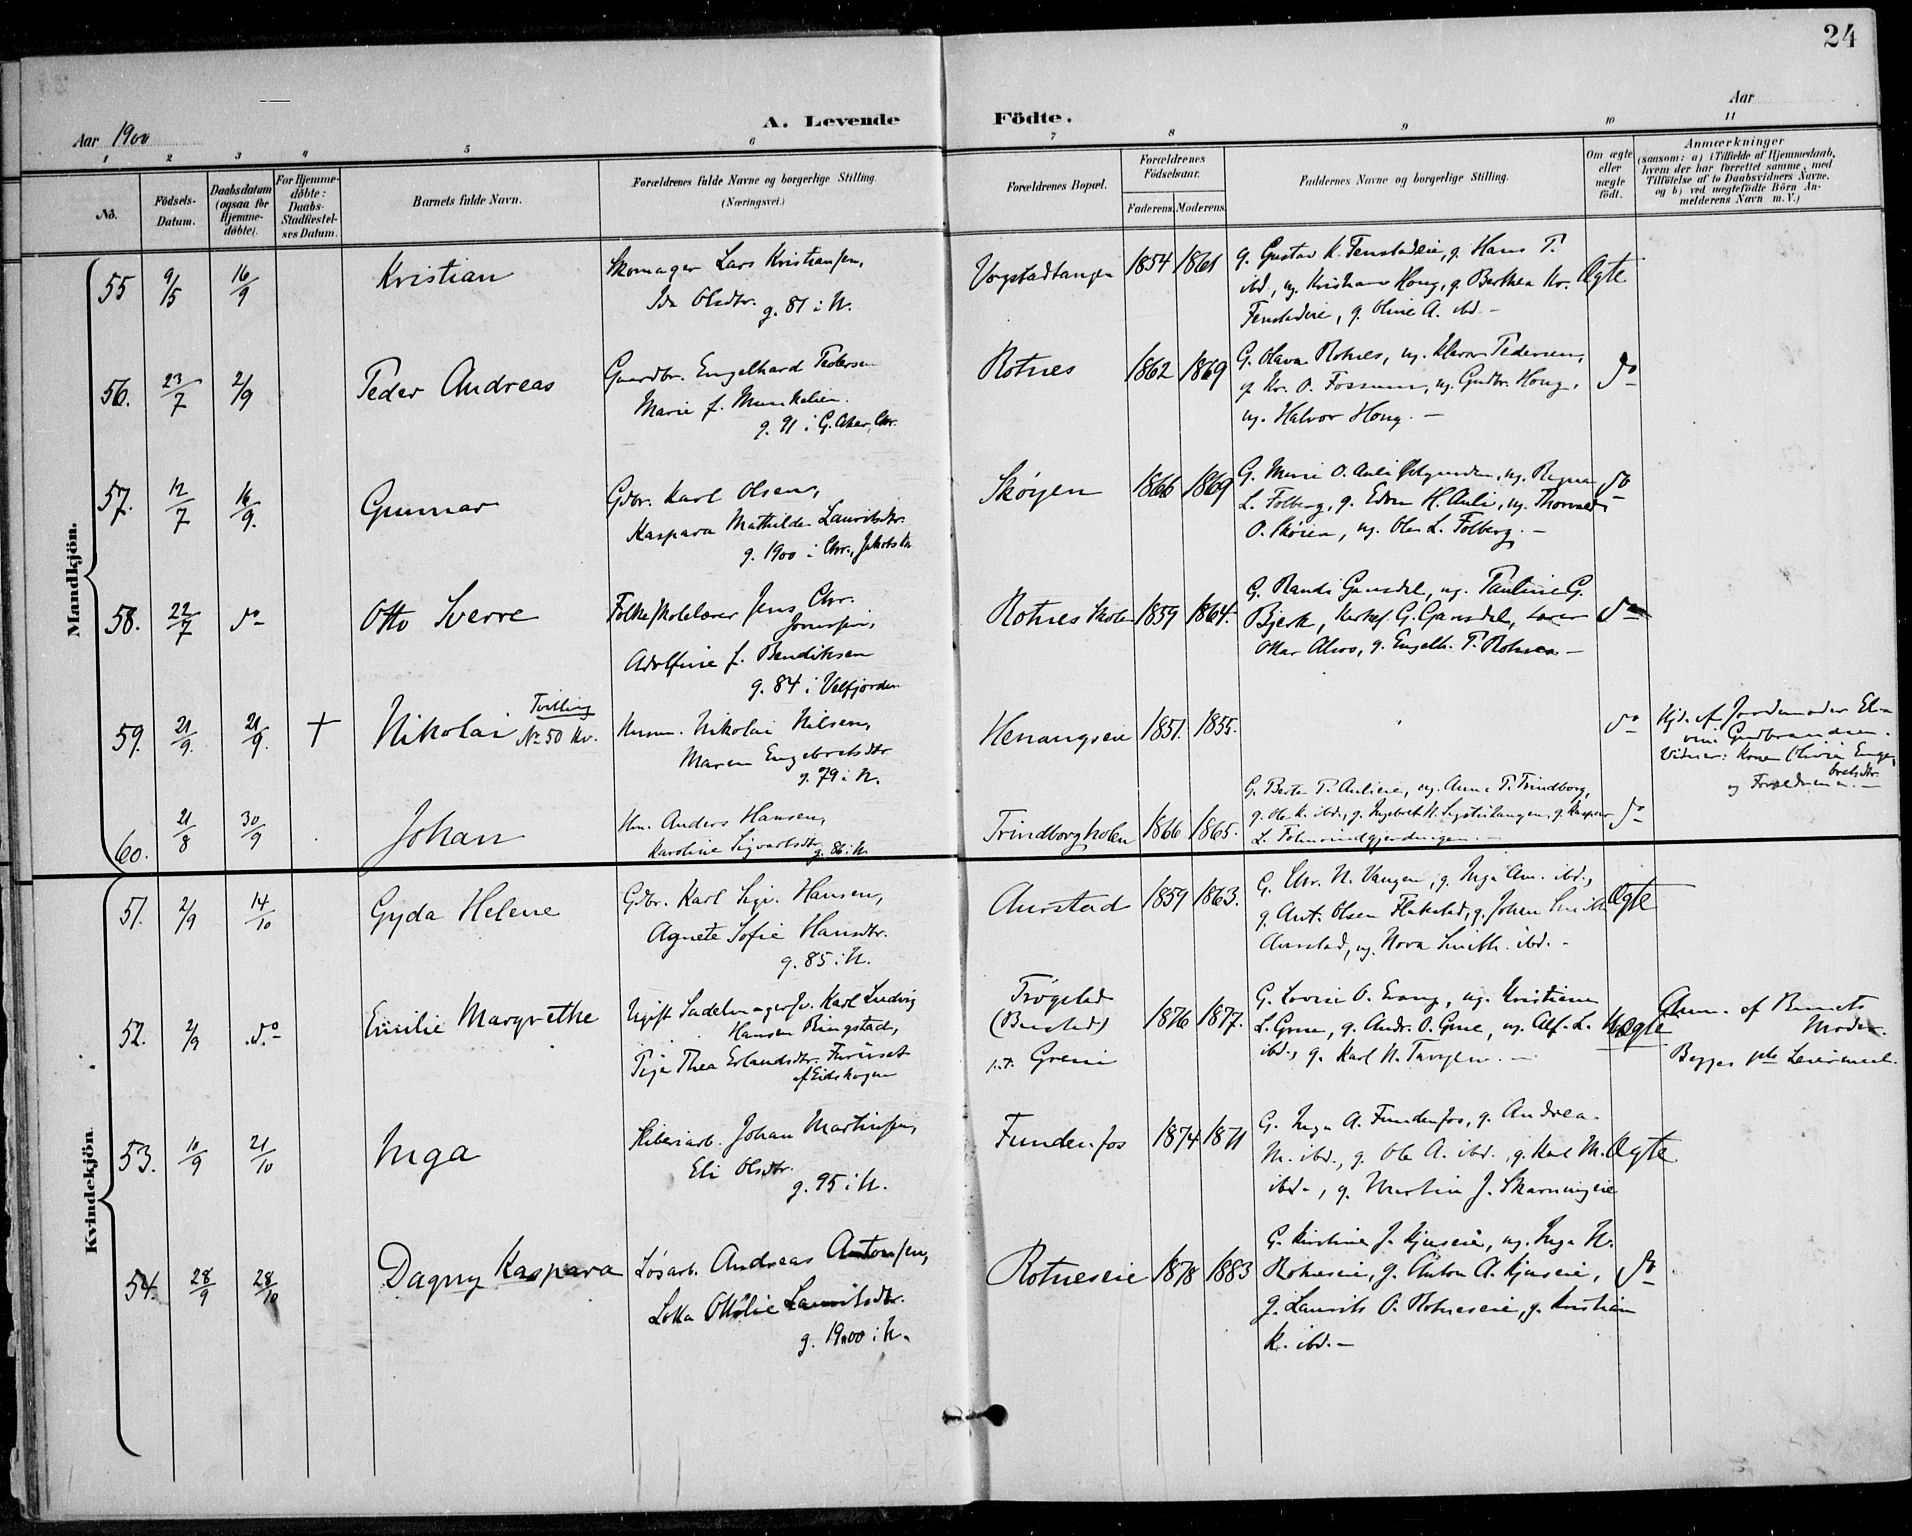 24
Aar 1900
A. Levende Födte.
Aar
1 2 3 4 5 6 7 8 9 10 11
No.
Födsels-Datum.
Daabsdatum (ogsaa for Hjemme-döbte).
For Hjemme-döbte: Daabs-Stadfæstel-ses Datum.
Barnets fulde Navn.
Forældrenes fulde Navne og borgerlige Stilling.
(Næringsvei.)
Forældrenes Bopæl.
Forældrenes Födselsaar.
Faderens. Moderens.
Faddernes Navne og borgerlige Stilling.
Om ægte eller uægte födt.
Anmærkninger
(saasom: a) i Tilfælde af Hjemmedaab, hvem der har forrettet samme, med Tilföielse af to Daabsvidners Navne. og b) ved uægtefödte Börn An-melderens Navn m. V.)
Mandkjön.
55 9/5 16/9 Kristian
Skomager Lars Kristiansen,
Ida Olsdtr. g. 81 i N.
1854 1861
g. Gustav K. Fenstadeie, g. Hans T.
ibd., ug. Kristian Hong, g. Berthea Kr.
Fenstadeie, g. Oline A. ibd. –
Ægte
56. 23/7 2/9 Peder Andreas
Gaardbr. Engelhard Pedersen
Marie f. Munkelien.
g. 91 i G. Aker, Chr.
Rotnes 1862 1869
G. Olava Rotnes, ug. Klara Pedersen,
g. Kr. O. Fossum, ug. Gudbr. Hong,
ug. Halvor Hong. –
do
57. 12/7 16/9. Gunnar
Gdbr. Karl Olsen,
Kaspara Mathilde Lauritsdtr.
g. 1900 i Chr., Jakobs K.
Skøyen 1866 1869
L. Folberg, g. Edv. H. Auli, ug. Thorvald
O. Skøien, ug. Ole L. Folberg. –
do
58. 22/7 do Otto Sverre
Folkeskolelærer Jens Chr.
Adolfine f. Bendiksen
g. 84 i Velfjorden
Rotnes Skole 1859 1864.
G. Randi Gansdal, ug. Pauline G.
Bjerk, G. Gansdal, Lærer
g. Engelh. P. Rotnes –
do
59. 21/9. 21/9. + Nikolai Tvilling No 50 Kv.
Husm. Nikolai Nilsen,
Maren Engebretsdtr
g. 79 i N.
Henangseie 1851. 1855.
do
Hjd. af Jordemoder El-
vine Gudbrandsen.
Vidner: Kone Olivia Enge-
bretsdtr.
og Forældrene. –
60. 21/8 30/9 Johan
Hm. Anders Hansen,
Karoline Sigvartsdtr g. 86 i N.
Trindborgholen 1866 1865.
G. Berte P. Aulieie, ug. Anna P. Trindborg,
g. Ole K. ibd., g. Ingebret N. g. Kaspar
do
Kvindekjön.
51. 2/9 14/10 Gyda Helene
Gdbr. Karl Sigv. Hansen,
Agnete Sofie Hansdtr.
g. 85 i N.
Aurstad 1859 1863.
G. Chr. N. Vangen, g. Inga Am. ibd.,
g. Ant. Olsen Flakstad, g. Johan Smith
Aurstad, ug. Nora Smith ibd. –
Ægte
52. 2/9 do Emilie Margrethe
Ugift Sadelmagersv. Karl Ludvig
Hansen Ringstad,
Pige Thea Erlandsdtr. Furuset
af Eidskogen
Trøgstad
p.t. Greni
1876 1877.
G. Lovise O. Evang, ug. Kristiane
L. Grue, g. Andr. O. Grue, ug. Alf. L.
ibd., g. Karl N. –
Uægte
Anm. af Barnets
Moder.
Begges 1ste Leiermaal.
53. 10/9 21/10 Inga
Sliberiarb. Johan Martinsen,
Eli Olsdtr.
g. 95 i N.
Fundenfos 1874 1871
G. Inga A. Fundenfos, g. Andrea
M. ibd., g. Ole A. ibd., g. Karl M.
ibd., g. Martin J. Skarningeie
Ægte
54. 28/9 28/10 Dagny Kaspara
Løsarb. Andreas Antonsen,
Lotta Ottilie Lauritsdtr.
g. 1900 i N.
Rotneseie 1878 1883
G. Kirstine J. Kjuseie, ug. Inga N.
Rotneseie, g. Anton A. Kjuseie,
g. Laurits O. Rotneseie, g. Kristian
K. ibd. –
do